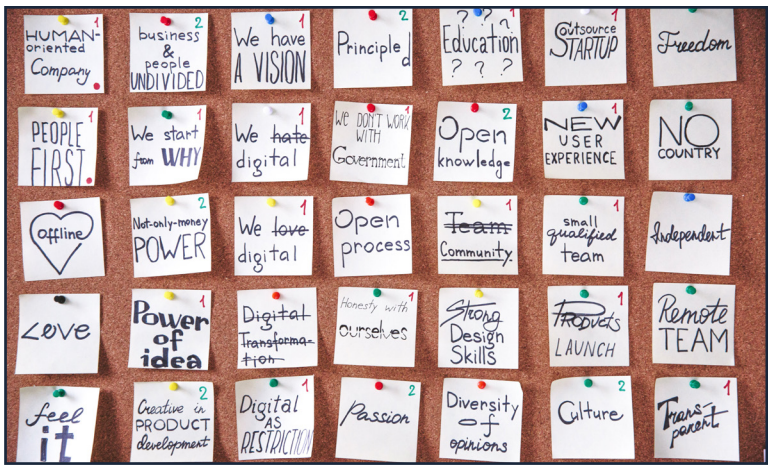 HUMAN- 1
oriented
Company.
business 2
&
people
UNDIVIDED
We have 1
A VISION
Principled 2
? ? ? 1
Education
? ? ?
Outsource 1
STARTUP
Freedom
PEOPLE 1
FIRST.
We start 1
from WHY
We hate 1
digital
We DON'T WORK 1
WITH
Government
Open 2
knowledge
NEW 1
USER
EXPERIENCE
NO
COUNTRY
offline
Not-only-money 2
POWER
We love 1
digital
Open
process
Team 1
Community
small 1
qualified
team
Independent
Love
Power 1
of
idea
Digital
Transforma-
tion
Honesty with 1
ourselves
Strong
Design
Skills
Products 1
LAUNCH
Remote
TEAM
feel
it
Creative in 2
PRODUCT
development
Digital 1
AS
RESTRICTION
Passion 2
Diversity
of
opinions
Culture 2
Trans- 1
parent